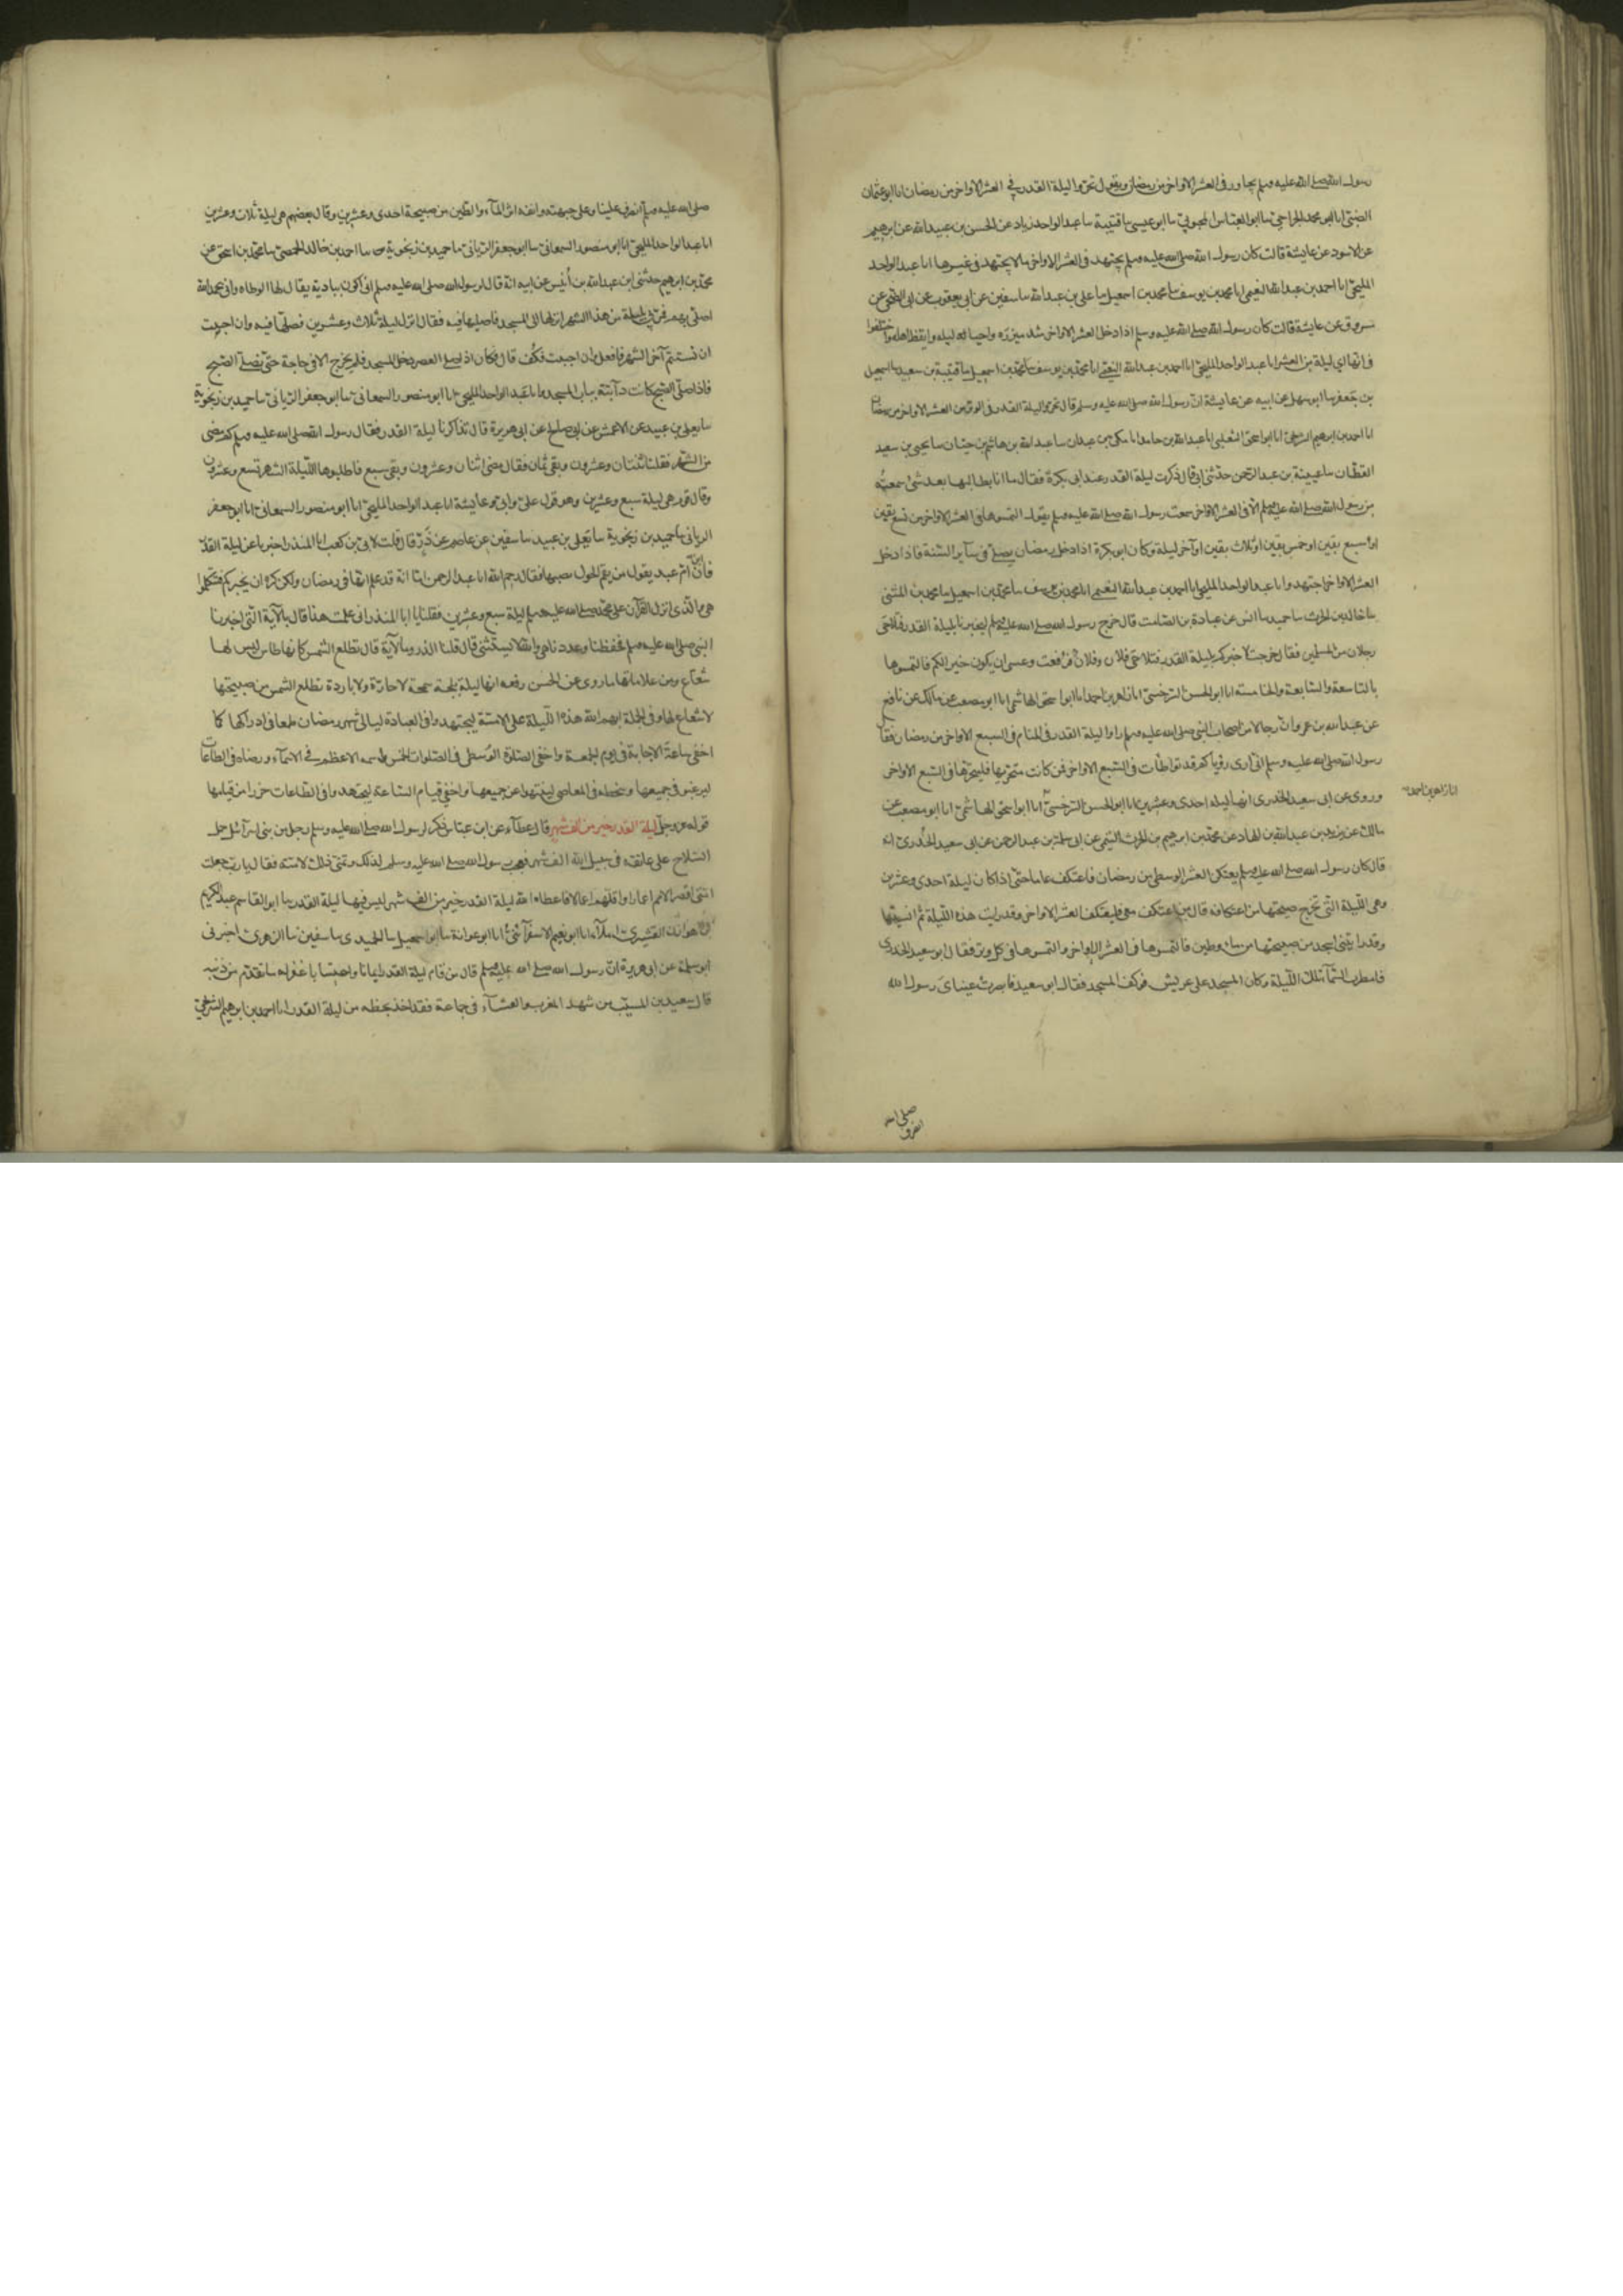 رسول الله صلى الله عليه وسلم يجاور فى العشر الاواخر من رمضان ويقول تحروا ليلة القدر فى العشر الاواخر من رمضان انا ابو عثمان
الضبى انا ابو محمد الجراحى سا ابو العباس المحبوبى سا ابو عيسى سا قتيبة سا عبد الواحد بن زياد عن الحسن بن عبيد الله عن ابرهيم
عن الاسود عن عايشة قالت كان رسول الله صلى الله عليه وسلم يجتهد فى العشر الاواخر ما لا يجتهد فى غيرها انا عبد الواحد
المليحى انا احمد بن عبد الله النعيمى انا محمد بن يوسف سا محمد بن اسمعيل سا على بن عبد الله سا سفين عن ابى يعقوب عن ابى الضحى عن
مسروق عن عايشة قالت كان رسول الله صلى الله عليه وسلم اذا دخل العشر الاواخر شد ميزره واحيا ليله وايقظ اهله واختلفوا
فى انها اى ليلة من العشر انا عبد الواحد المليحى انا احمد بن عبد الله النعيمى انا محمد بن يوسف سا محمد بن اسمعيل سا قتيبة بن سعيد سا اسمعيل
بن جعفر سا ابو سهيل عن ابيه عن عايشة ان رسول الله صلى الله عليه وسلم قال تحروا ليلة القدر فى الوتر من العشر الاواخر من رمضان
انا احمد بن ابرهيم الشريحى انا ابو اسحق الثعلبى انا عبد الله بن حامد انا مكى بن عبدان سا عبد الله بن هاشم بن حيان سا يحيى بن سعيد
القطان سا عيينة بن عبد الرحمن حدثنى ابى قال ذكرت ليلة القدر عند ابى بكرة فقال ما انا بطالبها بعد شئ سمعته
من رسول الله صلى الله عليه وسلم الا فى العشر الاواخر سمعت رسول الله صلى الله عليه وسلم يقول التمسوها فى العشر الاواخر من تسع بقين
او سبع بقين او خمس بقين او ثلاث بقين او آخر ليلة وكان ابو بكرة اذا دخل رمضان يصلى فى ساير السنة فاذا دخل
العشر الاواخر اجتهد وانا عبد الواحد المليحى انا احمد بن عبد الله النعيمى انا محمد بن يوسف سا محمد بن اسمعيل سا محمد بن المثنى
سا خالد بن الحرث سا حميد سا انس عن عبادة بن الصامت قال خرج رسول الله صلى الله عليه وسلم ليخبرنا بليلة القدر فتلاحى
رجلان من المسلمين فقال خرجت لاخبركم بليلة القدر فتلاحى فلان وفلان فرفعت وعسى ان يكون خيرا لكم فالتمسوها
بالتاسعة والسابعة والخامسة انا ابو الحسن السرخسى انا زاهر بن احمد انا ابو اسحق الهاشمى انا ابو مصعب عن مالك عن نافع
عن عبد الله بن عمر وان رجالا من اصحاب النبى صلى الله عليه وسلم راوا ليلة القدر فى المنام فى السبع الاواخر من رمضان فقال
رسول الله صلى الله عليه وسلم انى ارى رؤياكم قد تواطأت فى السبع الاواخر فمن كانت متحريها فليتحرها فى السبع الاواخر
وروى عن ابى سعيد الخدرى انها ليلة احدى وعشرين انا ابو الحسن السرخسى انا ابو اسحق الهاشمى انا ابو مصعب عن
انا زاهر بن احمد
مالك عن يزيد بن عبد الله بن الهاد عن محمد بن ابرهيم بن الحرث التيمى عن ابى سلمة بن عبد الرحمن عن ابى سعيد الخدرى انه
قال كان رسول الله صلى الله عليه وسلم يعتكف العشر الوسطى من رمضان فاعتكف عاما حتى اذا كان ليلة احدى وعشرين
وهى الليلة التى تخرج صبيحتها من اعتكافه قال من اعتكف معى فليعتكف العشر الاواخر وقد رايت هذه الليلة ثم انسيتها
وقد رايتنى اسجد من صبيحتها من ماء وطين فالتمسوها فى العشر الاواخر والتمسوها فى كل وتر فقال ابو سعيد الخدرى
فامطرت السماء تلك الليلة وكان المسجد على عريش فوكف المسجد فقال ابو سعيد فابصرت عيناى رسول الله
صلى الله
انصرف
صلى الله عليه وسلم انصرف علينا وعلى جبهته وانفه اثر الماء والطين من صبيحة احدى وعشرين وقال بعضهم هى ليلة ثلاث وعشرين
انا عبد الواحد المليحى انا ابو منصور السمعانى سا ابو جعفر الريانى سا حميد بن زنجوية سا احمد بن خالد الحمصى سا محمد بن اسحق عن
محمد بن ابرهيم حدثنى ابن عبد الله بن أنيس عن ابيه انه قال لرسول الله صلى الله عليه وسلم انى اكون ببادية يقال لها الوطاه وانى بحمد الله
اصلى بهم فمرنى بليلة من هذا الشهر انزلها الى المسجد فاصليها فيه فقال انزل ليلة ثلاث وعشرين فصلها فيه وان احببت
ان تستتم آخر الشهر فافعل وان احببت فكف قال فكان اذا صلى العصر دخل المسجد فلم يخرج الا فى حاجة حتى يصلى الصبح
فاذا صلى الصبح كانت دآبته بباب المسجد وانا عبد الواحد المليحى انا ابو منصور السمعانى سا ابو جعفر الريانى سا حميد بن زنجوية
سا يعلى بن عبيد عن الاعمش عن ابى صالح عن ابى هريرة قال تذاكرنا ليلة القدر فقال رسول الله صلى الله عليه وسلم كم مضى
من الشهر فقلنا ثنتان وعشرون وبقى ثمان فقال مضى اثنان وعشرون وبقى سبع فاطلبوها الليلة الشهر تسع وعشرون
وقال قوم هى ليلة سبع وعشرين وهو قول على وابى وعايشة انا عبد الواحد المليحى انا ابو منصور السمعانى انا ابو جعفر
الريانى سا حميد بن زنجوية سا يعلى بن عبيد سا سفين عن عاصم عن ذر قال قلت لابى بن كعب ابا المنذر اخبرنا عن ليلة القدر
فان ابن ام عبد يقول من يقم الحول يصبها فقال رحم الله ابا عبد الرحمن اما انه قد علم انها فى رمضان ولكن كره ان يخبركم فتتكلوا
هى والذى انزل القرآن على محمد صلى الله عليه وسلم ليلة سبع وعشرين فقلنا يا ابا المنذر انى علمت هذا قال بالآية التى اخبرنا
النبى صلى الله عليه وسلم فحفظنا وعددنا هى والله لا يستثنى قال قلنا لذر وما الآية قال تطلع الشمس كانها طاس ليس لها
شعاع ومن علاماتها ما روى عن الحسن رفعه انها ليلة بلجة سمحة لا حارة ولا باردة تطلع الشمس من صبيحتها
لا شعاع لها وفى الجملة ابهم الله هذه الليلة على الامة ليجتهدوا فى العبادة ليالى شهر رمضان طمعا فى ادراكها كما
اخفى ساعة الاجابة فى يوم الجمعة واخفى الصلوة الوسطى فى الصلوات الخمس واسمه الاعظم فى الاسماء ورضاه فى الطاعات
ليرغبوا فى جميعها وسخطه فى المعاصى لينتهوا عن جميعها واخفى قيام الساعة ليجتهدوا فى الطاعات حذرا من قيامها
قوله عز وجل ليلة القدر خير من الف شهر قال عطاء عن ابن عباس ذكر لرسول الله صلى الله عليه وسلم رجل من بنى اسرآئيل حمل
السلاح على عاتقه فى سبيل الله الف شهر فعجب رسول الله صلى الله عليه وسلم لذلك وتمنى ذلك لامته فقال يا رب جعلت
امتى اقصر الامم اعمارا واقلهم اعمالا فاعطاه الله ليلة القدر خير من الف شهر ليس فيها ليلة القدر سا ابو القاسم عبد الكريم
بن هوازن القشيرى املاء انا ابو نعيم الاسفرآئنى انا ابو عوانة سا ابو اسمعيل سا الحميدى سا سفين سا الزهرى اخبرنى
ابو سلمة عن ابى هريرة ان رسول الله صلى الله عليه وسلم قال من قام ليلة القدر ايمانا واحتسابا غفر له ما تقدم من ذنبه
قال سعيد بن المسيب من شهد المغرب والعشاء فى جماعة فقد اخذ بحظه من ليلة القدر انا احمد بن ابرهيم الشريحى